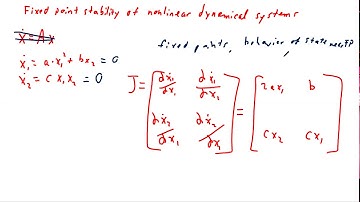 Fixed point stability of nonlinear dynamical systems
ẋ = Ax
fixed points, behavior of state near FP
ẋ₁ = a·x₁² + bx₂ = 0
ẋ₂ = c x₁x₂ = 0
J = [∂ẋ₁/∂x₁ ∂ẋ₁/∂x₂
∂ẋ₂/∂x₁ ∂ẋ₂/∂x₂] = [2ax₁ b
cx₂ cx₁]